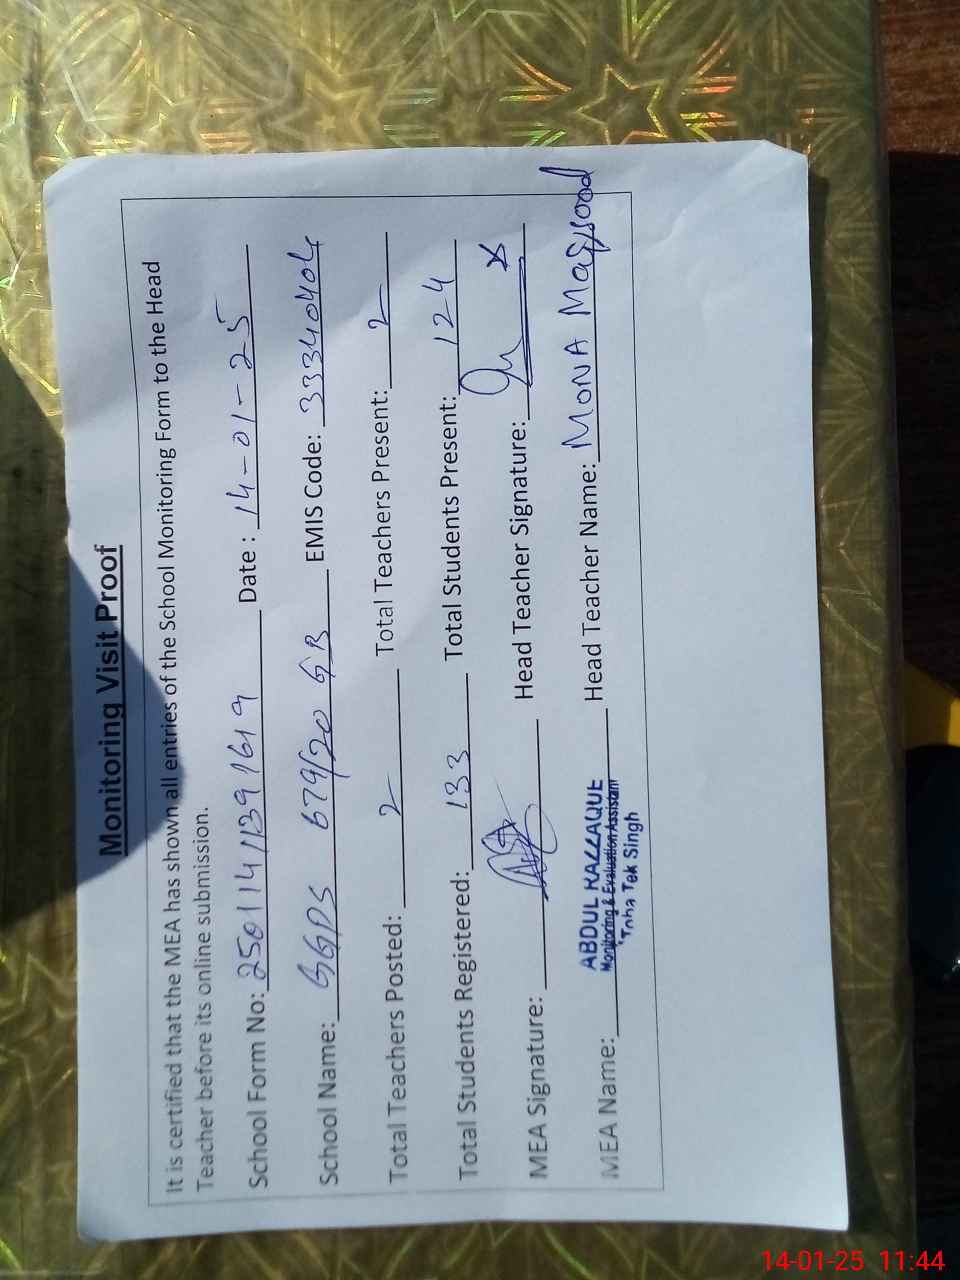 Monitoring Visit Proof
It is certified that the MEA has shown all entries of the School Monitoring Form to the Head
Teacher before its online submission.
School Form No: 25011411391619 Date : 14-01-25
School Name: GGPS 679/20 GB EMIS Code: 33340404
Total Teachers Posted: 2 Total Teachers Present: 2
Total Students Registered: 133 Total Students Present: 124
MEA Signature: Head Teacher Signature:
MEA Name: ABDUL RAZZAQUE Head Teacher Name: MONA Maqsood
Monitoring & Evaluation Assistant
Toba Tek Singh
14-01-25 11:44